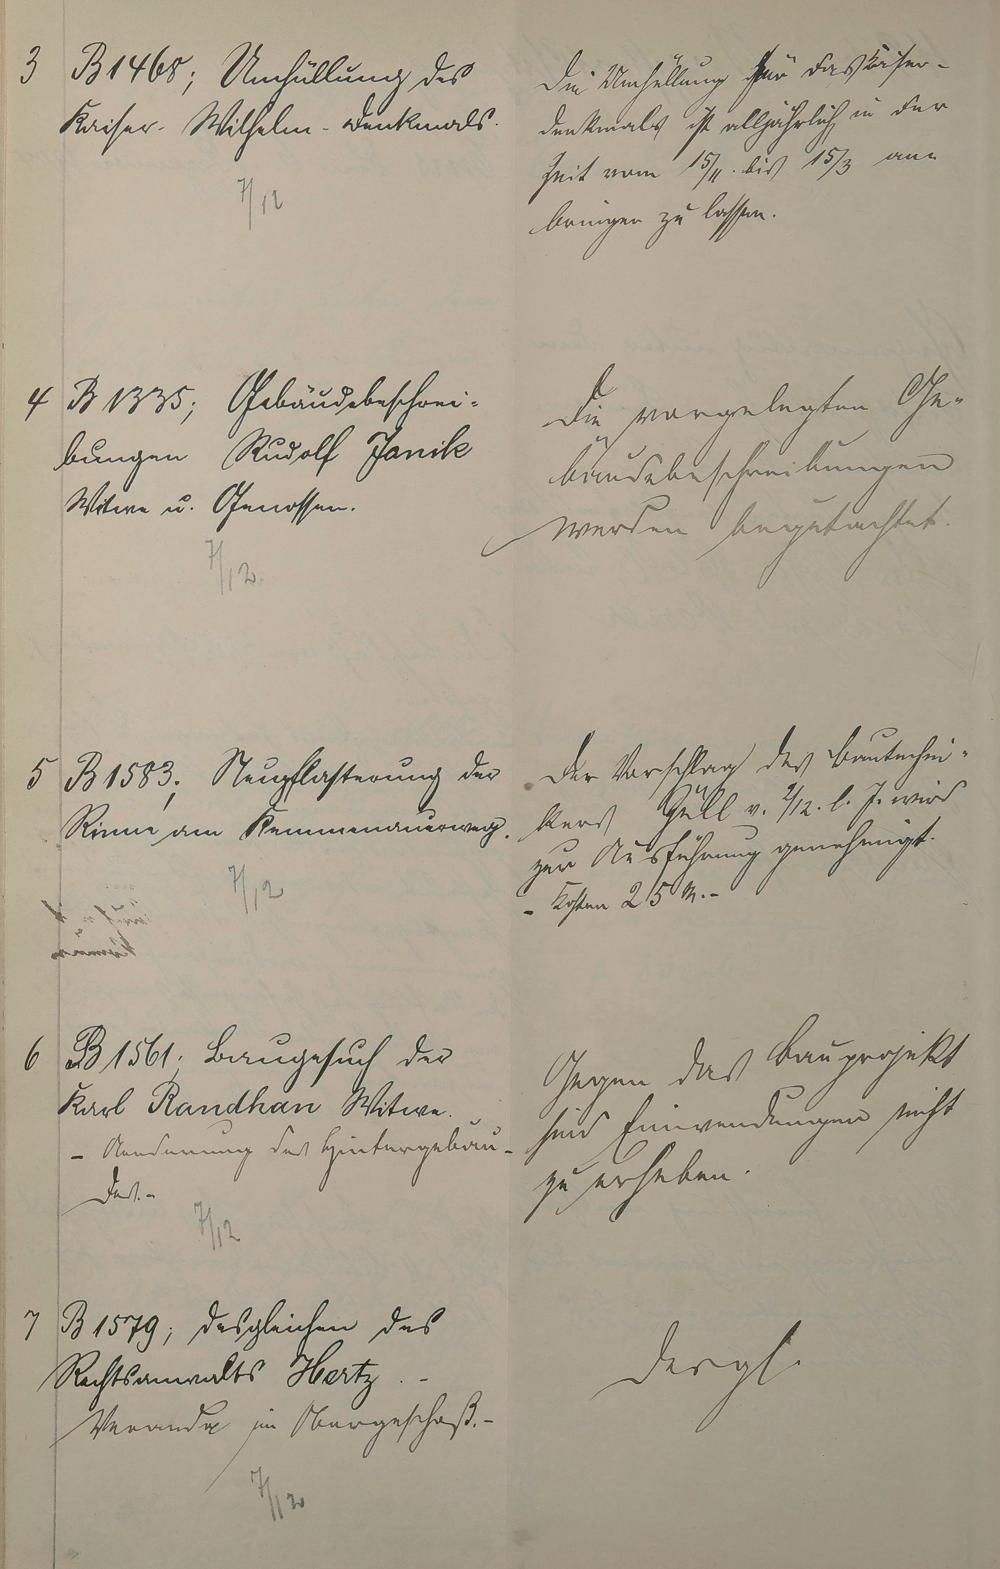 3 B 1468; Umhüllung des
Kaiser- Wilhelm-Denkmals.
7/12
Die Umhüllung für das Kaiser-
denkmals ist alljährlich in der
Zeit vom 15/11. bis 15/3 an-
bringen zu lassen.
4 B 1335; Gebäudebeschrei-
bungen Rudolf Janik
Witwe u. Genossen.
7/12.
Die vorgelegten Ge-
bäudebeschreibungen
werden begutachtet.
5 B 1583; Neupflasterung der
Rinne am Kemmenauerweg.
7/12
Der Vorschlag des Bautechni-
kers Güll v. 2/12. l. J. wird
zur Ausführung genehmigt.
- Kosten 25 M.-
6 B 1561; Baugesuch der
Karl Randhan Witwe.
- Aenderung des Hintergebäu-
des.-
7/12
Gegen das Bauprojekt
sind Einwendungen nicht
zu erheben.
7 B 1579; desgleichen des
Rechtsanwalts Hertz. -
Veranda im Obergeschoß.-
7/12
desgl.